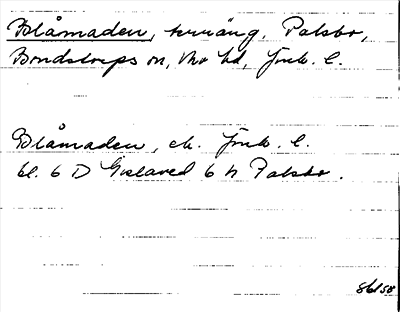 Blåmaden, terräng, Palsbo,
Bondstorps sn, Mo hd, Jönk. l.
Blåmaden, ek. Jönk. l.
bl. 6 D Gislaved 6 h Palsbo.
86158